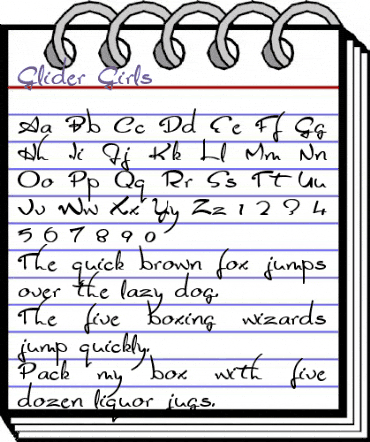 Glider Girls
Aa Bb Cc Dd Ee Ff Gg
Hh Ii Jj Kk Ll Mm Nn
Oo Pp Qq Rr Ss Tt Uu
Vv Ww Xx Yy Zz 1 2 3 4
5 6 7 8 9 0
The quick brown fox jumps
over the lazy dog.
The five boxing wizards
jump quickly.
Pack my box with five
dozen liquor jugs.